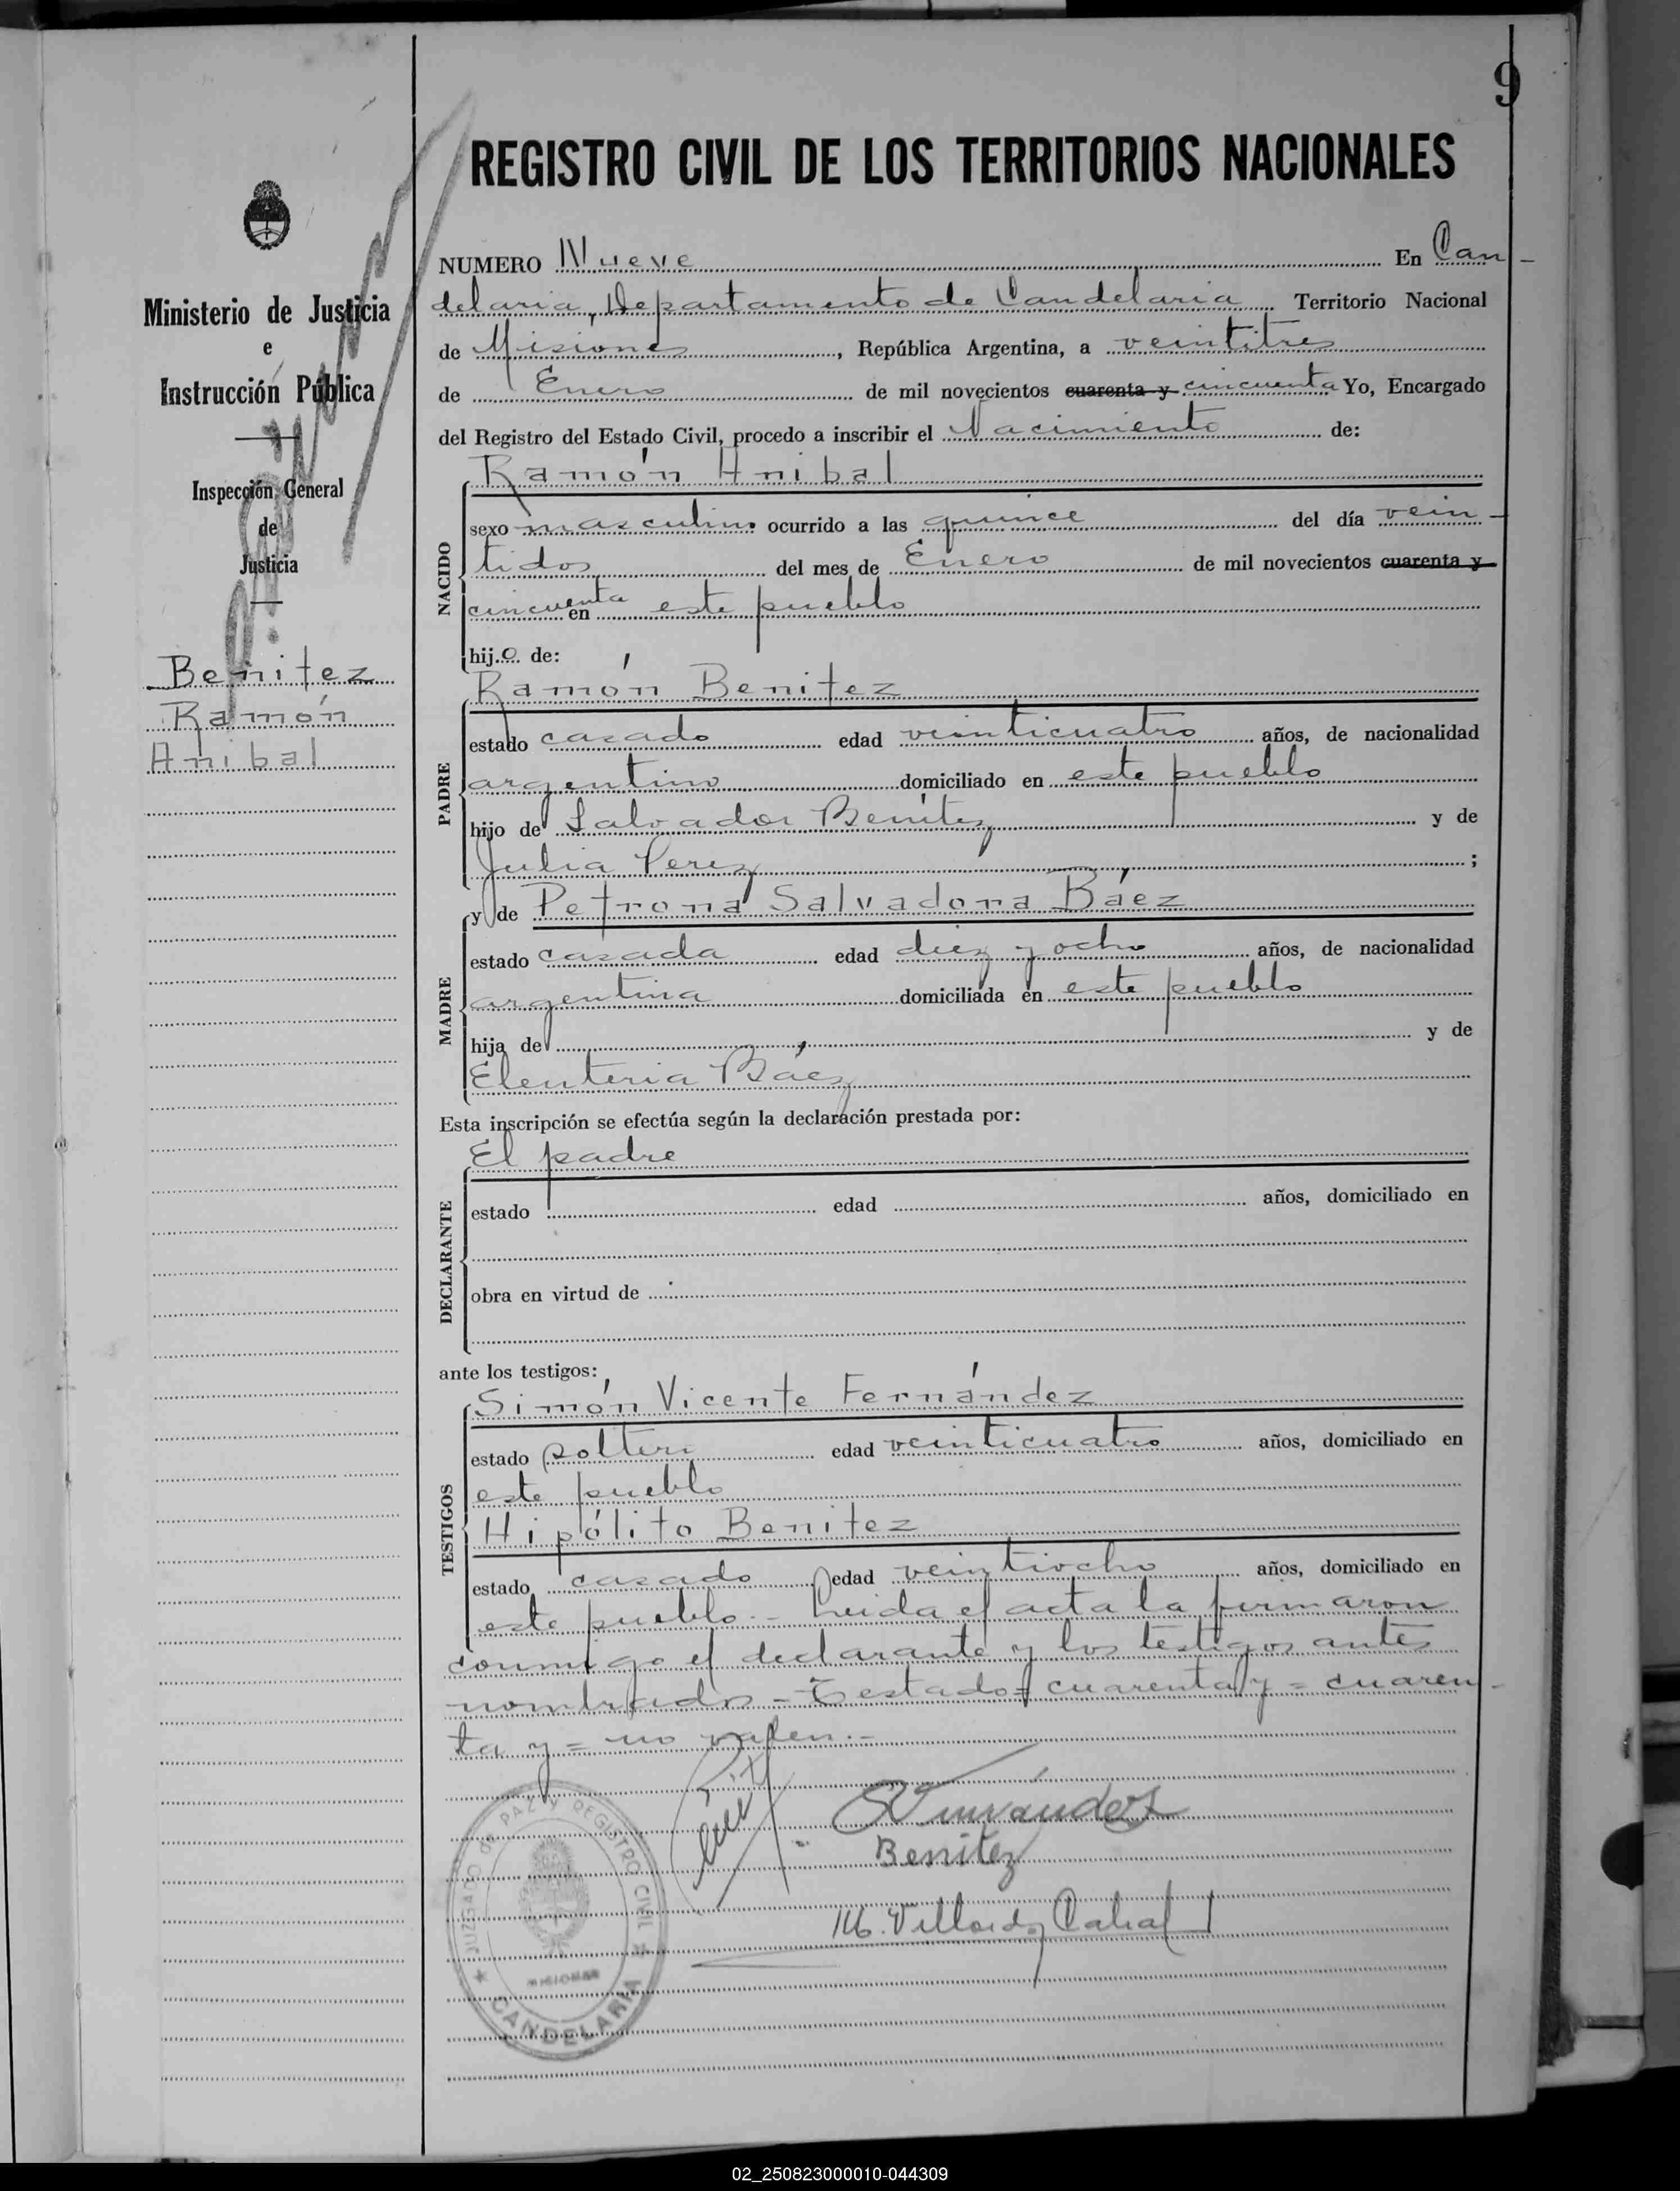 9
REGISTRO CIVIL DE LOS TERRITORIOS NACIONALES
Ministerio de Justicia
e
Instrucción Pública
Inspección General
de
Justicia
Benitez
Ramón
Anibal
NUMERO Nueve En Can-
delaria, Departamento de Candelaria Territorio Nacional
de Misiones, República Argentina, a veintitres
de Enero de mil novecientos cuarenta y cincuenta Yo, Encargado
del Registro del Estado Civil, procedo a inscribir el Nacimiento de:
NACIDO
Ramón Anibal
sexo masculino ocurrido a las quince del día vein-
tidos del mes de Enero de mil novecientos cuarenta y
cincuenta en este pueblo
hijo de:
PADRE
Ramón Benitez
estado casado edad veinticuatro años, de nacionalidad
argentino domiciliado en este pueblo
hijo de Salvador Benítez y de
Julia Perez ;
MADRE
y de Petrona Salvadora Báez
estado casada edad diez y ocho años, de nacionalidad
argentina domiciliada en este pueblo
hija de y de
Eleuteria Báez
Esta inscripción se efectúa según la declaración prestada por:
DECLARANTE
El padre
estado edad años, domiciliado en
obra en virtud de
ante los testigos:
TESTIGOS
Simón Vicente Fernández
estado soltero edad veinticuatro años, domiciliado en
este pueblo
Hipólito Benitez
estado casado edad veintiocho años, domiciliado en
este pueblo.- Leida el acta la firmaron
conmigo el declarante y los testigos antes
nombrados - Testado = cuarenta y = cuaren-
ta y = no valen.-
Benítez
JUZGADO DE PAZ Y REGISTRO CIVIL
MISIONES
CANDELARIA
02_250823000010-044309